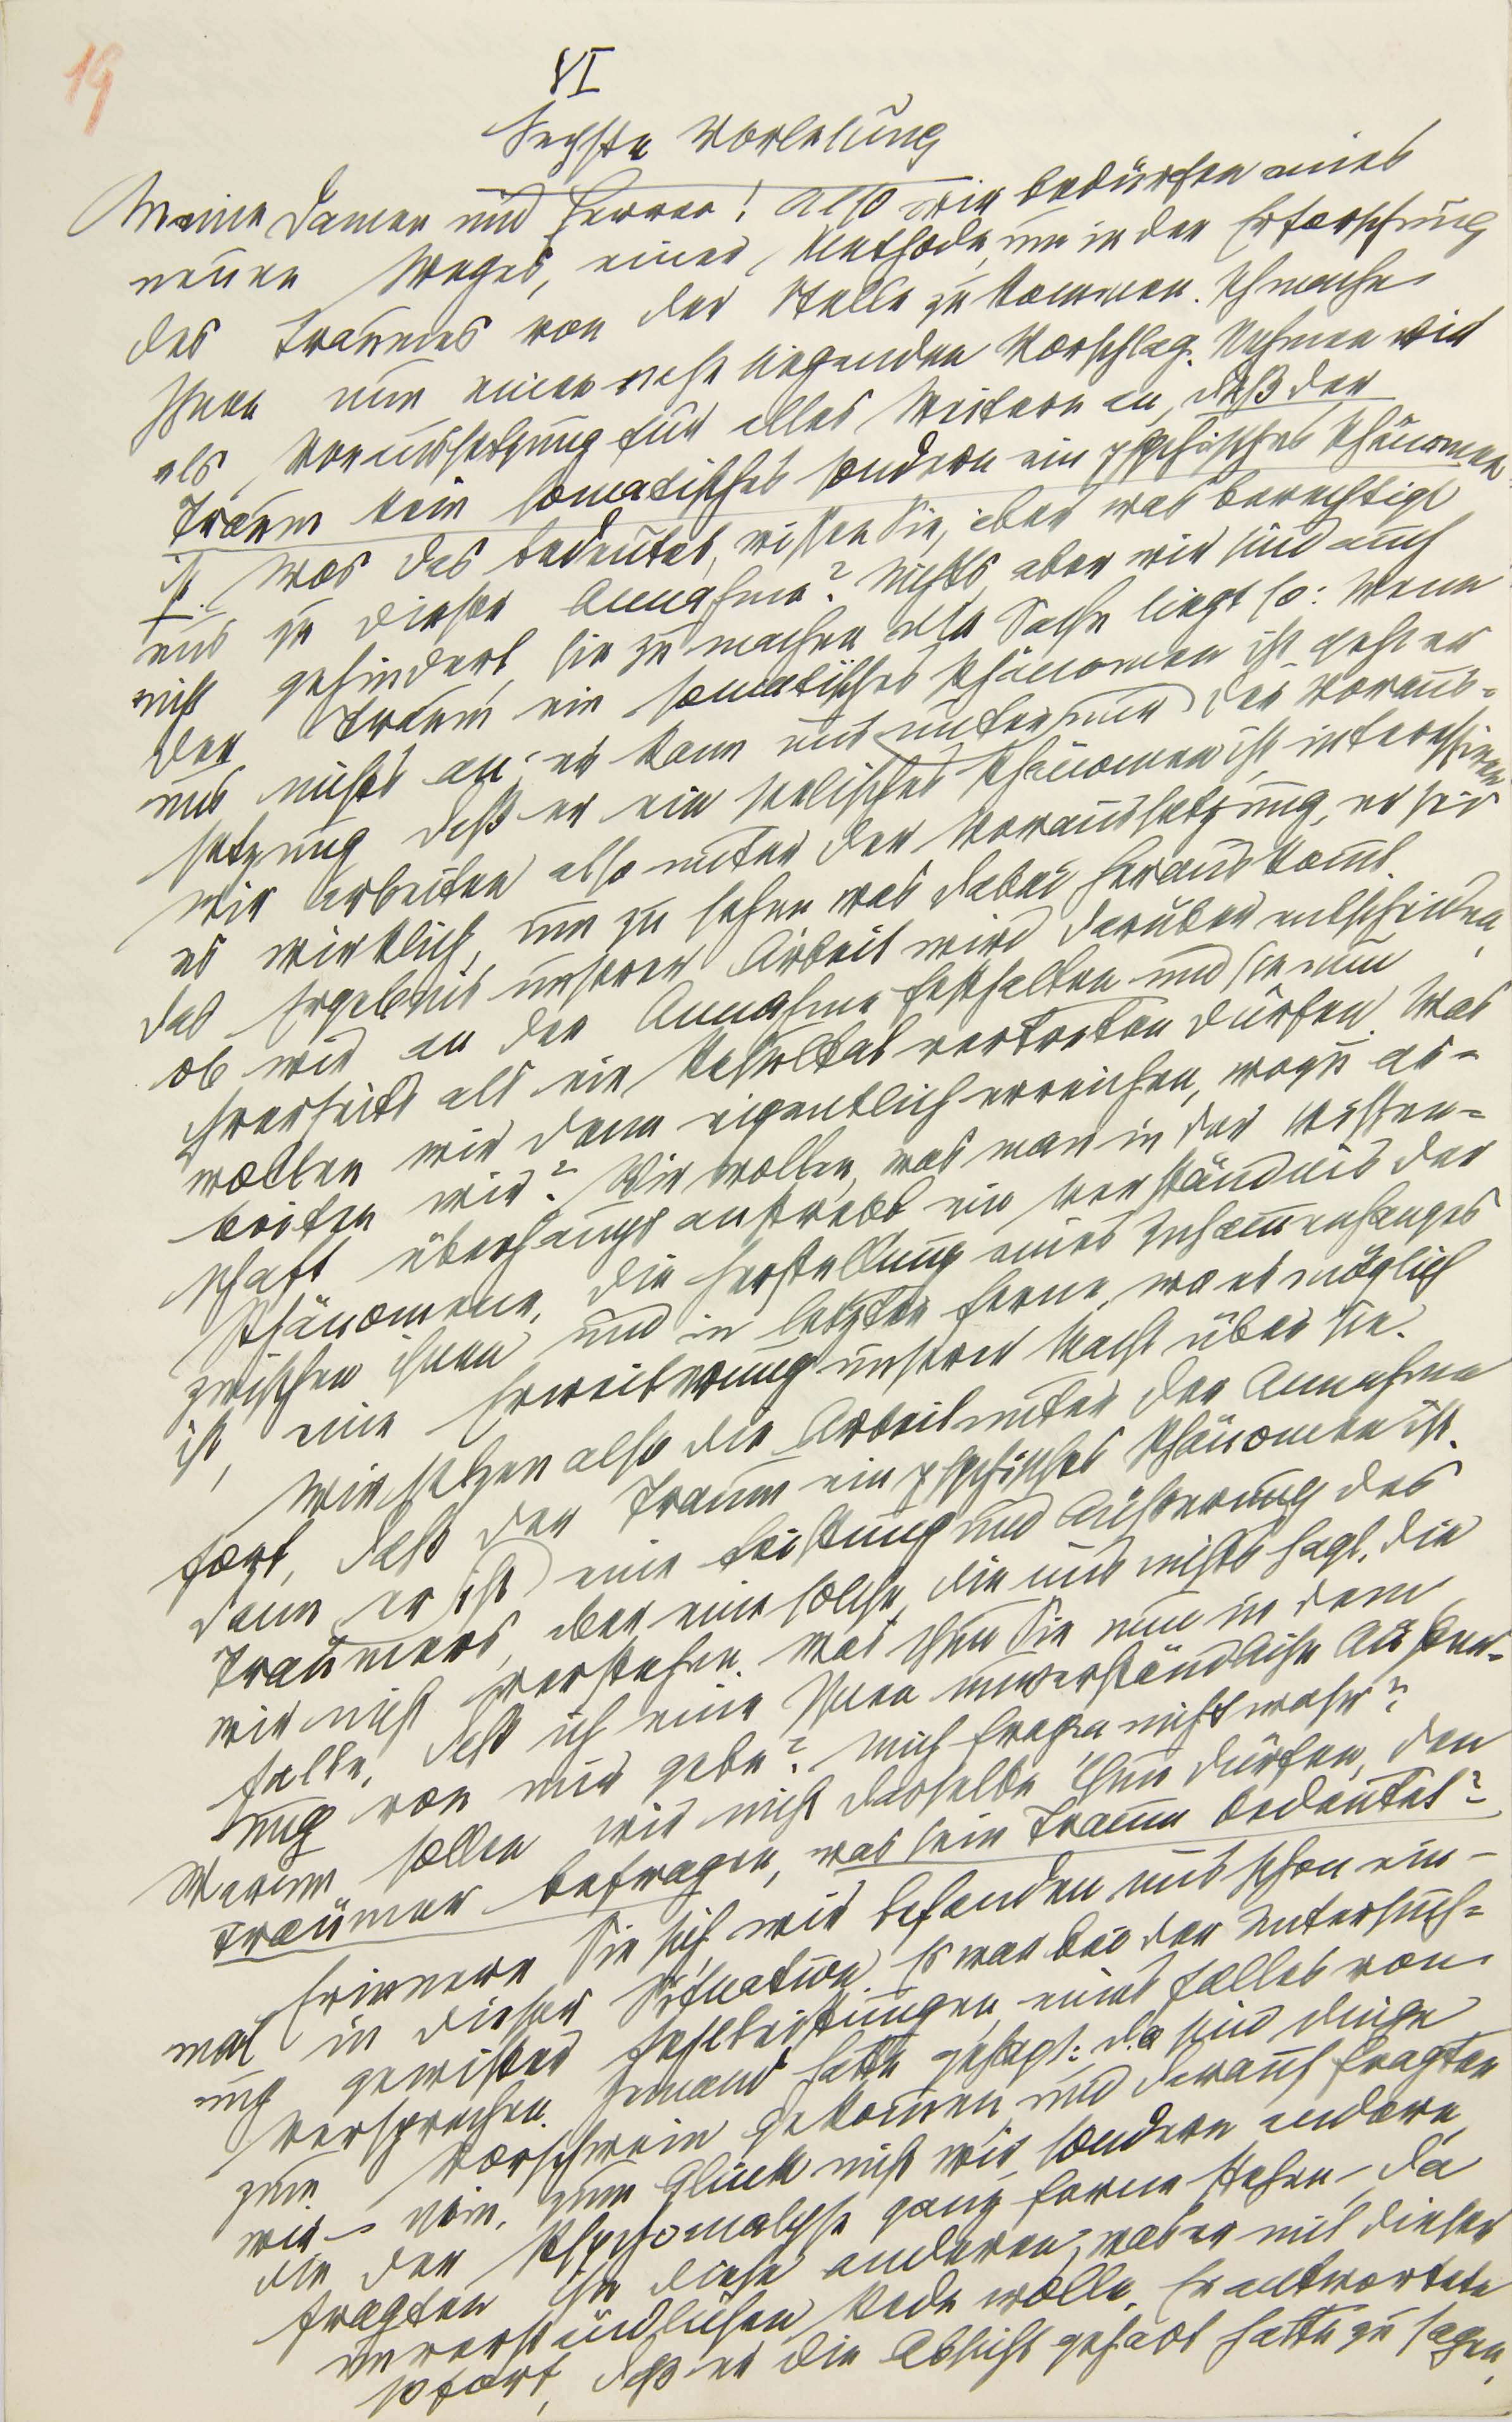 19
VI
Sechste Vorlesung
Meine Damen und Herren! Also wir bedürfen eines
neuen Weges, einer Methode, um in der Erforschung
des Traumes von der Stelle zu kommen. Ich mache
Ihnen nun einen nahe liegenden Vorschlag. Nehmen wir
als Voraussetzung für alles Weitere an, daß der
Traum kein somatisches sondern ein psychisches Phänomen
ist. Was das bedeutet, wissen Sie, aber was berechtigt
uns zu dieser Annahme? Nichts, aber wir sind auch
nicht gehindert sie zu machen. Die Sache liegt so: Wenn
der Traum ein somatisches Phänomen ist geht er
uns nichts an; er kann uns nur unter der Voraus-
setzung daß er ein seelisches Phänomen ist, interessieren
Wir arbeiten also unter der Voraussetzung, er sei
es wirklich, um zu sehen was dabei herauskom̄t.
Das Ergebnis unserer Arbeit wird darüber entscheiden,
ob wir an der Annahme festhalten und sie nun
ihrerseits als ein Resultat vertreten dürfen. Was
wollen wir denn eigentlich erreichen, wozu ar-
beiten wir? Wir wollen, was man in der Wissen-
schaft überhaupt anstrebt ein Verständnis der
Phänomene, die Herstellung eines Zusam̄enhanges
zwischen ihnen und in letzter Ferne, wo es möglich
ist, eine Erweiterung unserer Macht über sie.
Wir setzen also die Arbeit unter der Annahme
fort, daß der Traum ein psychisches Phänomen ist.
Dann ist er eine Leistung und Äußerung des
Träumers, aber eine solche, die uns nichts sagt, die
wir nicht verstehen. Was thun Sie nun in dem
Falle, daß ich eine Ihnen unverständliche Äußer-
ung von mir gebe? Mich fragen nicht wahr?
Warum sollen wir nicht dasselbe thun dürfen, den
Träumer befragen, was sein Traum bedeutet?
Erinnern Sie sich, wir befanden uns schon ein-
mal in dieser Situation. Es war bei der Untersuch-
ung gewisser Fehlleistungen, eines Falles von
Versprechen. Jemand hatte gesagt: Da sind Dinge
zum Vorschwein gekom̄en, und darauf fragten
wir – nein, zum Glück nicht wir, sondern andere,
die der Psychoanalyse ganz ferne stehen – da
fragten ihn diese anderen, was er mit dieser
unverständlichen Rede wolle. Er antwortete
sofort, daß er die Absicht gehabt hatte zu sagen,